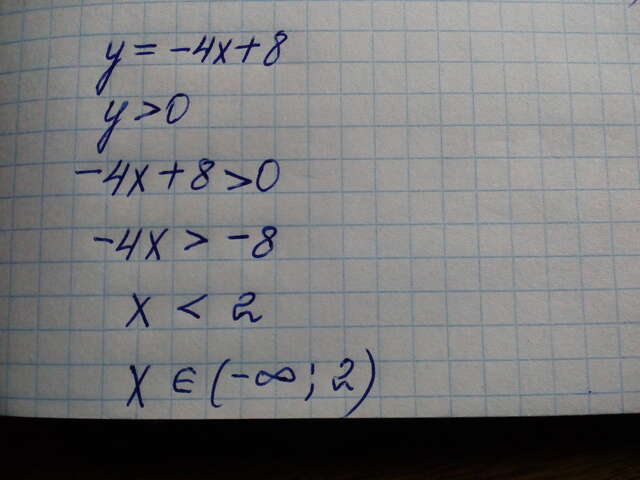 y = -4x+8
y>0
-4x+8>0
-4x > -8
x < 2
x ∈ (-∞; 2)